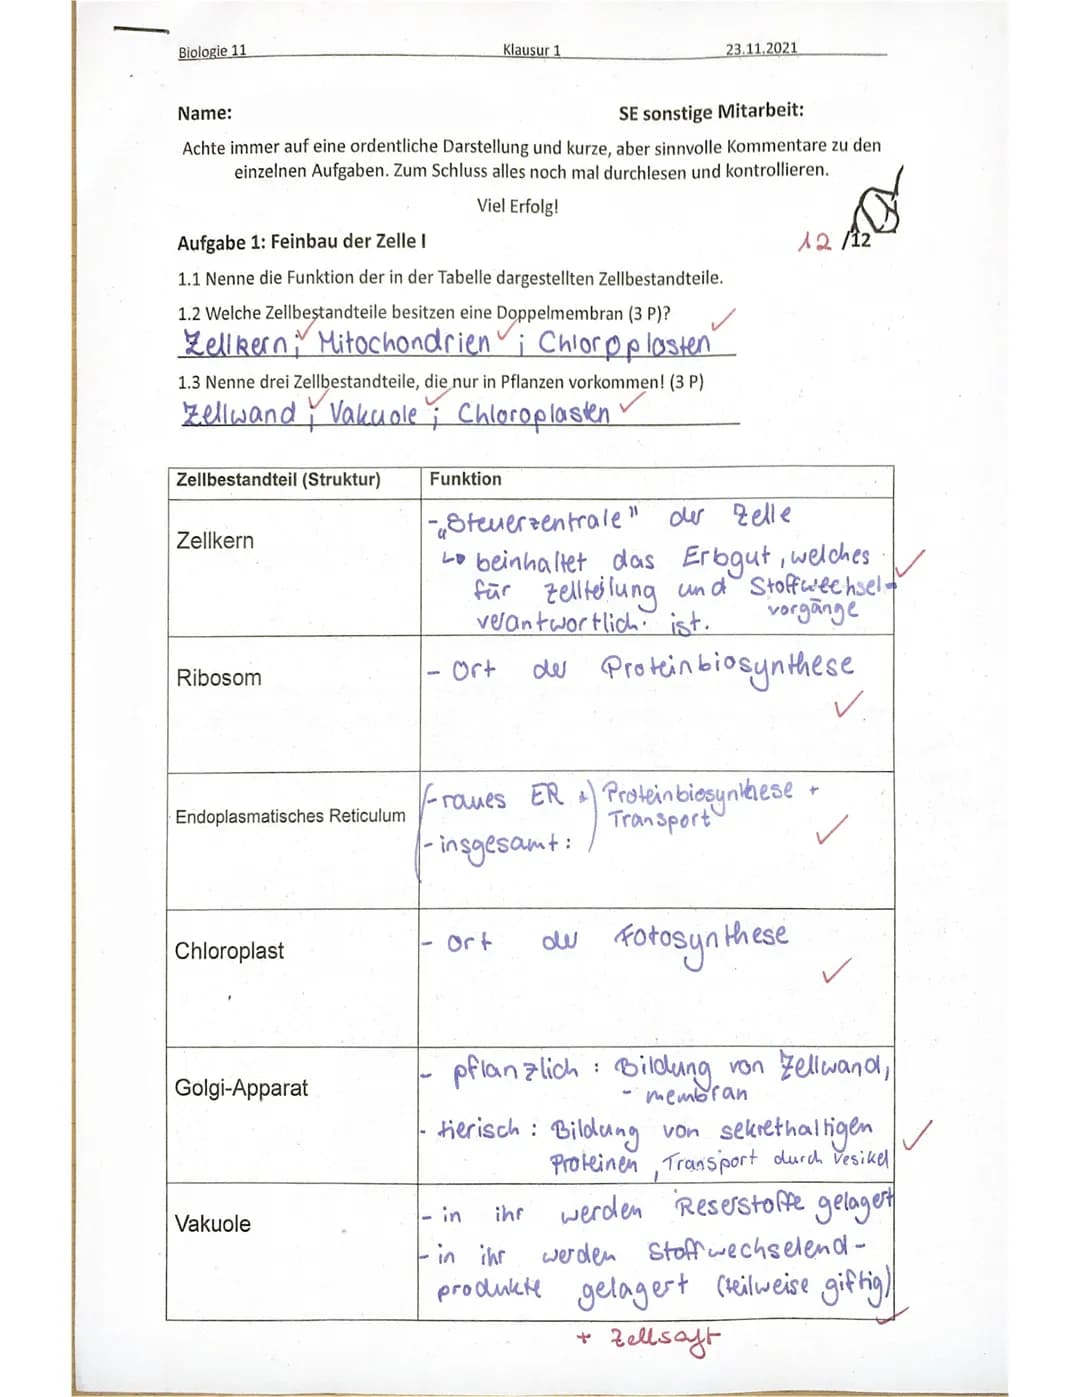 Biologie 11 Klausur 1 23.11.2021
Name: SE sonstige Mitarbeit:
Achte immer auf eine ordentliche Darstellung und kurze, aber sinnvolle Kommentare zu den
einzelnen Aufgaben. Zum Schluss alles noch mal durchlesen und kontrollieren.
Viel Erfolg!
Aufgabe 1: Feinbau der Zelle I 12 /12
1.1 Nenne die Funktion der in der Tabelle dargestellten Zellbestandteile.
1.2 Welche Zellbestandteile besitzen eine Doppelmembran (3 P)?
Zellkern; Mitochondrien; Chloroplasten
1.3 Nenne drei Zellbestandteile, die nur in Pflanzen vorkommen! (3 P)
Zellwand; Vakuole; Chloroplasten
Zellbestandteil (Struktur) Funktion
Zellkern
- „Steuerzentrale" der Zelle
↳ beinhaltet das Erbgut, welches
für Zellteilung und Stoffwechsel-
vorgänge
verantwortlich ist.
Ribosom
- Ort der Proteinbiosynthese
Endoplasmatisches Reticulum
- raues ER + Proteinbiosynthese +
Transport
- insgesamt:
Chloroplast
- Ort der Fotosynthese
Golgi-Apparat
- pflanzlich: Bildung von Zellwand,
- membran
- tierisch: Bildung von sekrethaltigen
Proteinen, Transport durch Vesikel
Vakuole
- in ihr werden Reserstoffe gelagert
- in ihr werden Stoffwechselend-
produkte gelagert (teilweise giftig)
+ Zellsaft